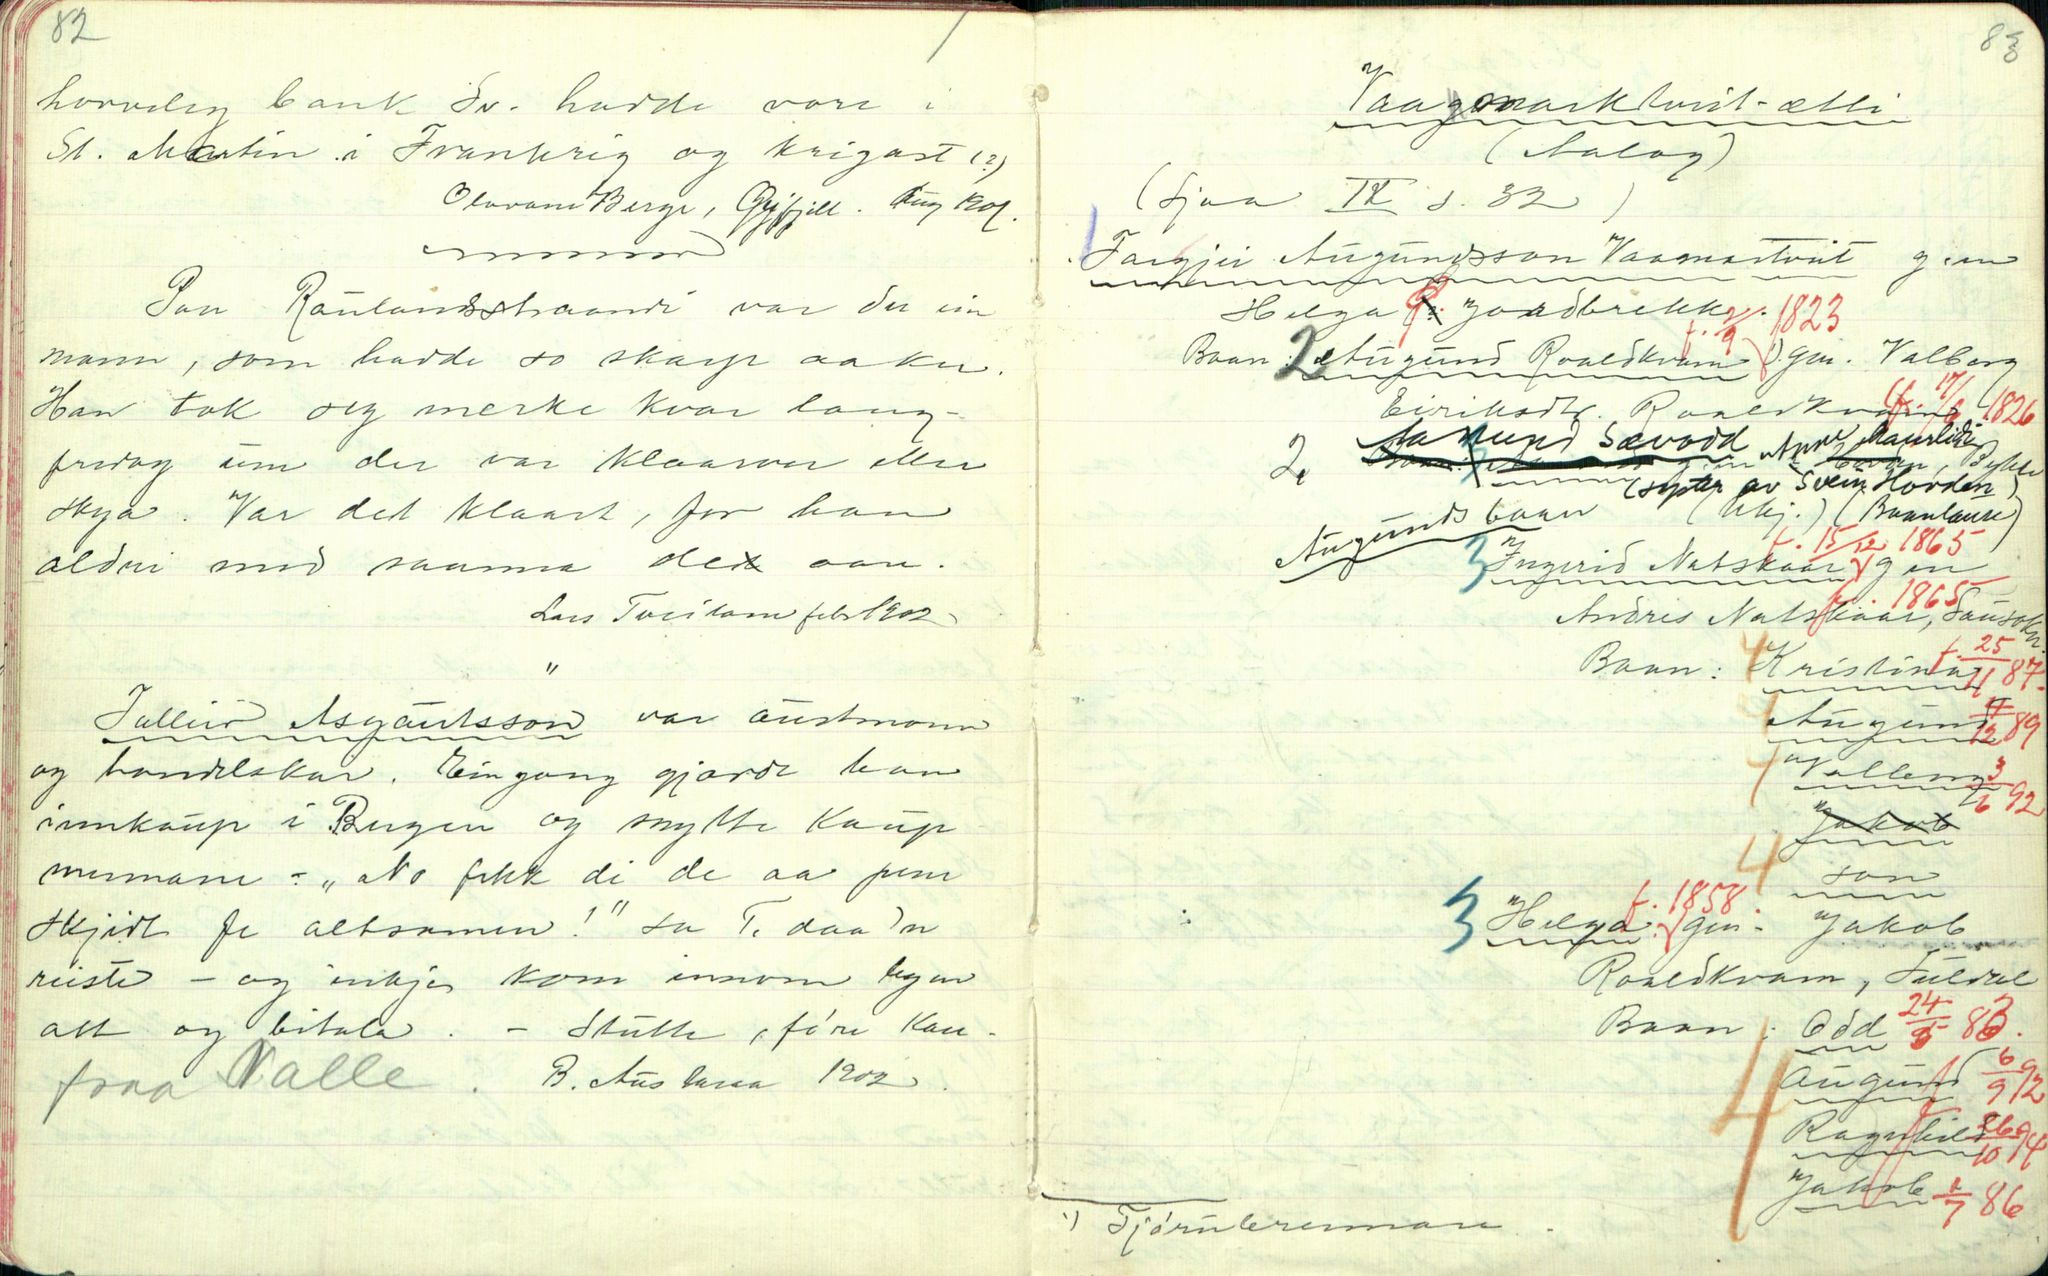 82
horveleg bank Sv. hadde vore i
St. Martin i Frankrig og krigast (?)
Olavane Berge, Gyfjell. Aug 1901.
Paa Raulandsstraandi var der ein
mann, som hadde so skarp aaker.
Han tok seg merke kvar lang-
fredag um der var klaarver eller
skya. Var det klaart, for han
aldri med saanna den aan.
Lars Tveitane febr 1902
"
Talleiv Asgautsson var austmann
og handelskar. Ein gong gjorde han
innkaup i Bergen og snytte kaup-
mennane - „No fekk di de aa pene
skjidt fe altsamen!" sa T. daa 'n
reiste - og inkje kom innom legar
att og bitala. - Stutte, føre kan-
fraa Valle. B. Austaraa 1902.
83
Vaagsmarktveit-ætti
(Aalag)
(Sjaa IX s. 32)
1 Targjei Augundsson Vaamartveit g. m
Helga Jordbrekk.
Baan: 2 Augund Roaldkvam f. 9/9 1823 1) gm. Valborg
Eiriksdtr. Roaldkvam f. 17/6 1826
2, Aasmund Sævodd g. m Anne Maurlid, Bykle
(syster av Svein Hovden)
Augunds baan (Ukj.) (Baanlause)
3 Ingerid Natskaar f. 15/12 1865 g m
Andres Natskaar, f. 1865 Sausokn.
Baan: 4 Kristina f. 25/11 87.
4 Augund 11/12 89
4 Valborg 3/6 92
Jakob
4 son
3 Helga f. 1858. gm. Jakob
Roaldkvam, Suldal
Baan: Odd 24/5 83.
4 Augund 6/9 92
Ragnhild 26/10 94
Jakob 1/7 86
1) Tjørubrennare.